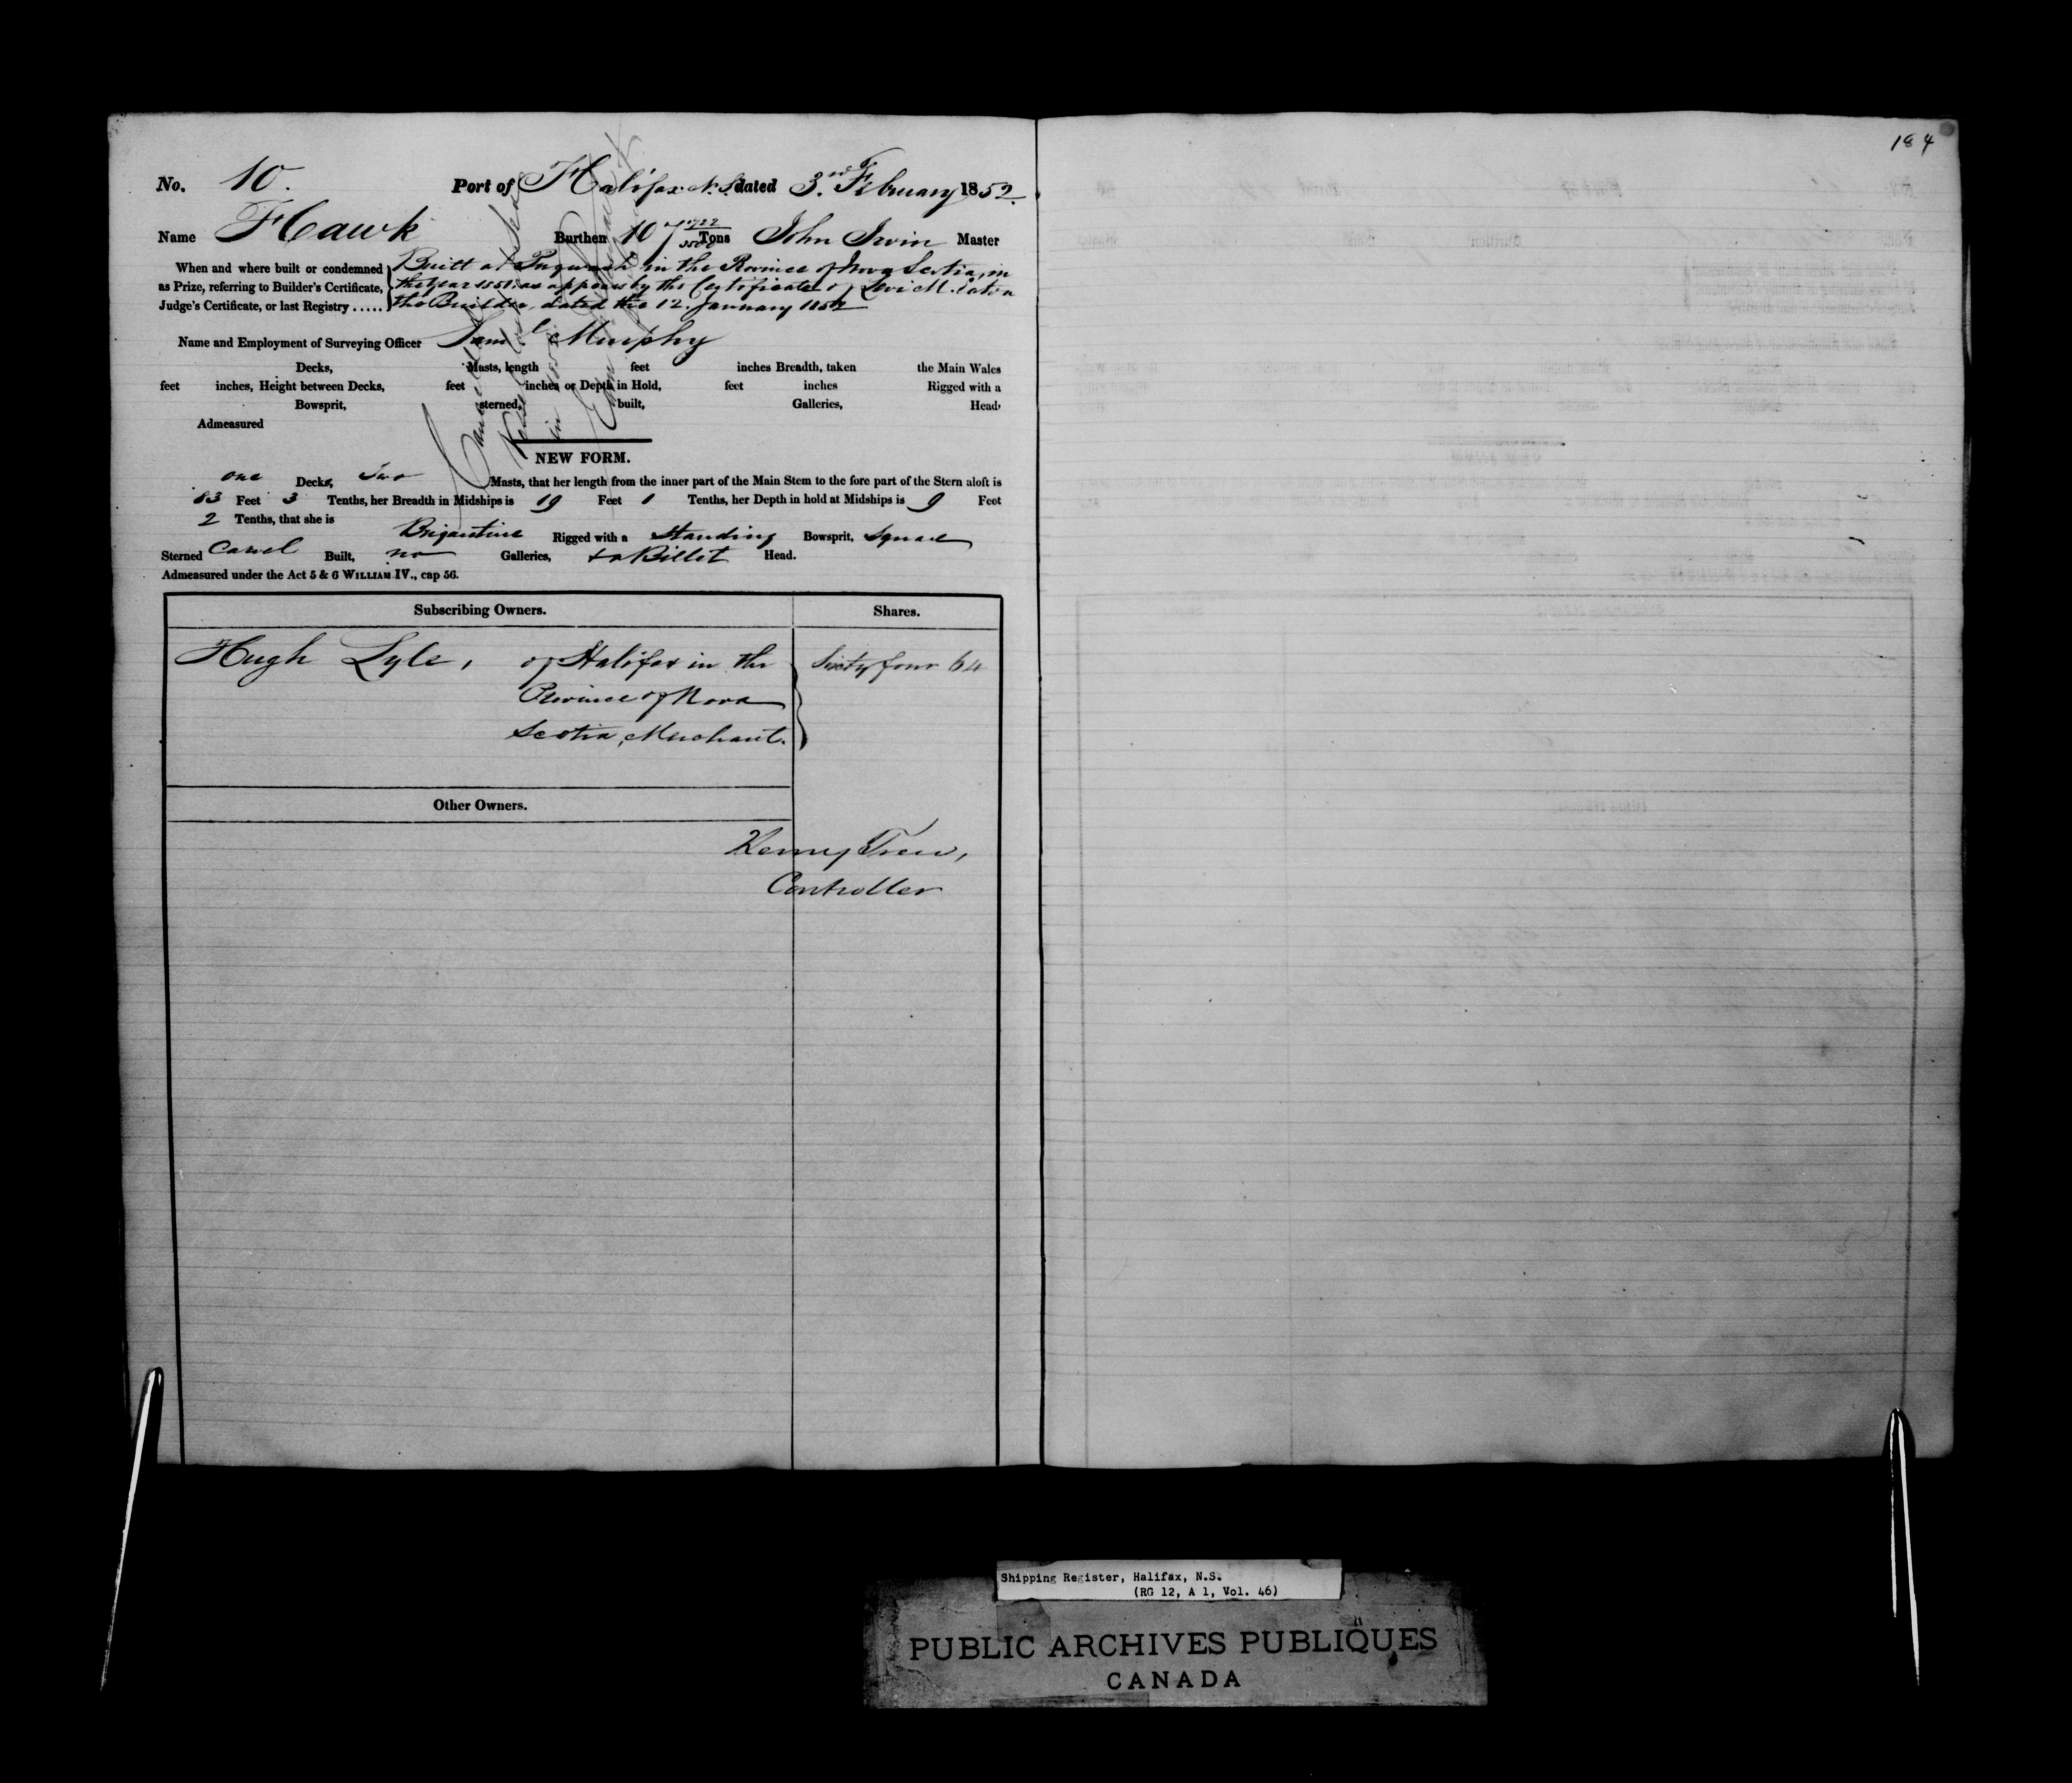 184
No. 10. Port of Halifax N.S. dated 3rd February 1852.
Name Hawk Burthen 107 Tons John Irvin Master
When and where built or condemned
as Prize, referring to Builder's Certificate,
Judge's Certificate, or last Registry .....
Built at Pugwash in the Province of Nova Scotia, in
the Year 1851, as appears by the Certificate of Levi M. Eaton
the Builder, dated the 12. January 1852
Name and Employment of Surveying Officer Saml Murphy
Decks, Masts, length feet inches Breadth, taken the Main Wales
feet inches, Height between Decks, feet inches or Depth in Hold, feet inches Rigged with a
Bowsprit, sterned, built, Galleries, Head,
Admeasured
Cancelled
Vessel
in 185
NEW FORM.
one Decks, Two Masts, that her length from the inner part of the Main Stem to the fore part of the Stern aloft is
83 Feet 3 Tenths, her Breadth in Midships is 19 Feet 1 Tenths, her Depth in hold at Midships is 9 Feet
2 Tenths, that she is Brigantine Rigged with a Standing Bowsprit, Square
Sterned Carvel Built, no Galleries, & a Billet Head.
Admeasured under the Act 5 & 6 WILLIAM IV., cap 56.
Subscribing Owners. Shares.
Hugh Lyle, of Halifax in the Sixty four 64
Province of Nova
Scotia, Merchant.
Other Owners.
Trew,
Controller
Shipping Register, Halifax, N.S.
(RG 12, A 1, Vol. 46)
PUBLIC ARCHIVES PUBLIQUES
CANADA